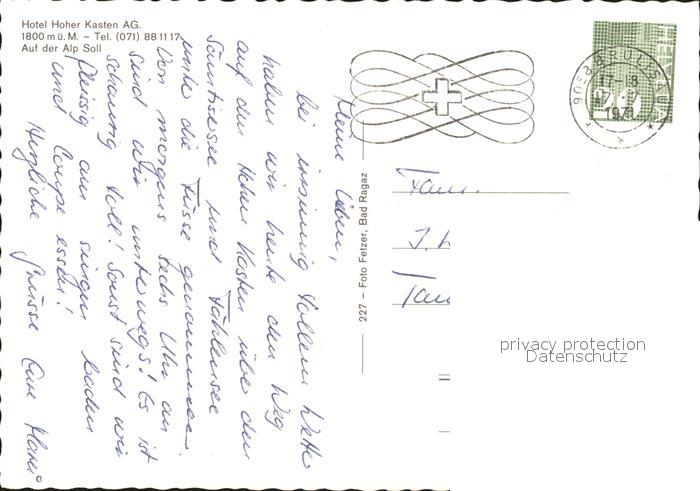 Hotel Hoher Kasten AG.
1800 m ü. M. – Tel. (071) 88 11 17
Auf der Alp Soll
Meine Lieben,
bei irrsinnig tollem Wetter
haben wir heute den Weg
auf den Hohen Kasten über den
Sämtisersee und Fählensee
unter die Füsse genommen.
Von morgens sechs Uhr an
sind wir unterwegs! Es ist
schaurig toll! Sonst sind wir
fleissig am singen baden
und Coupe essen!
Herzliche Grüsse Eure
227 – Foto Fetzer, Bad Ragaz
HELVETIA
20
9058 BRÜLISAU
17-18
1971
Fam.
privacy protection
Datenschutz